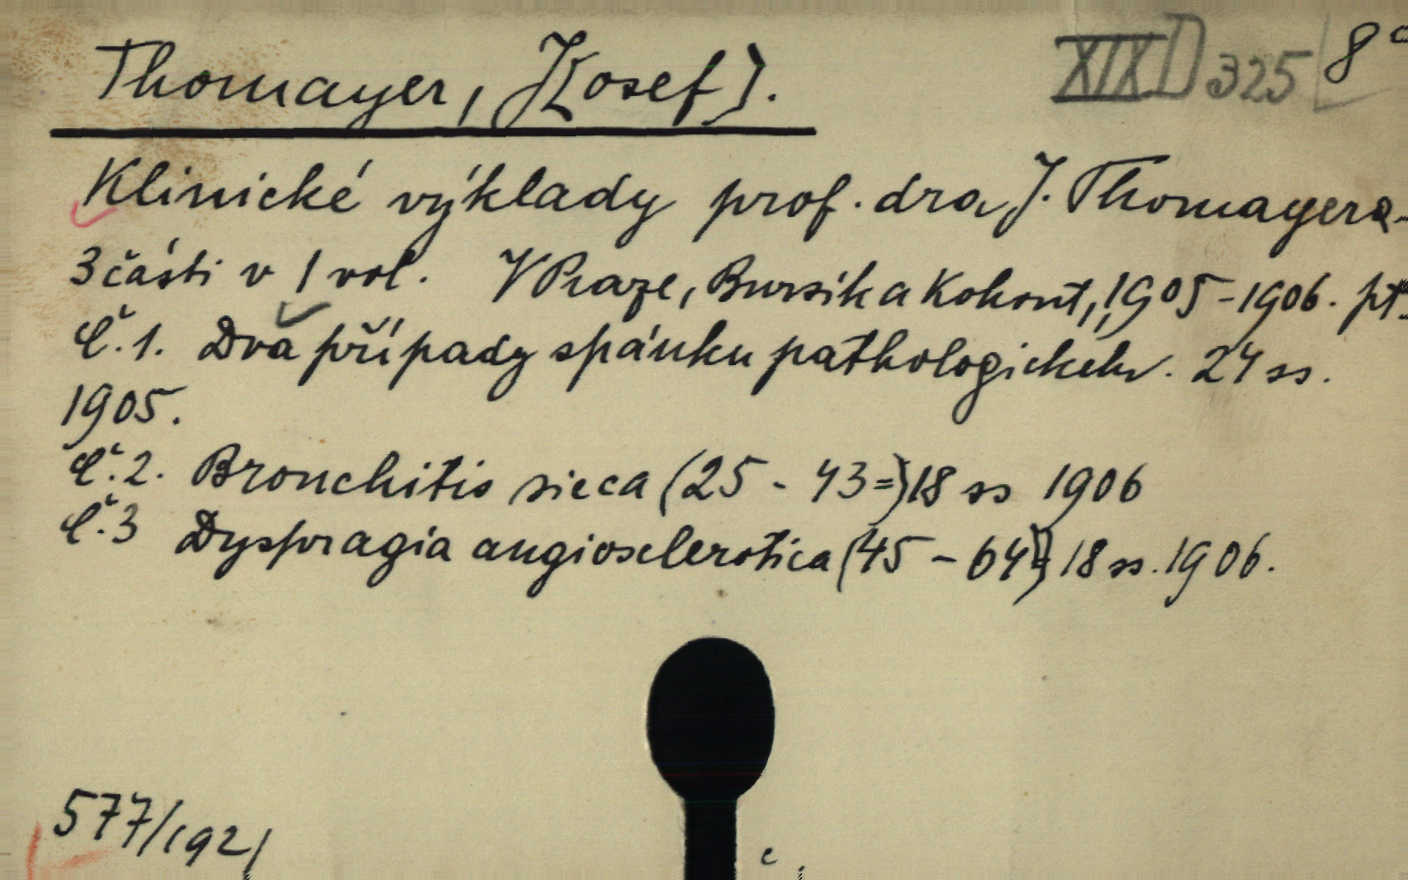 Thomayer, J[osef].
XIX D 325 8°
Klinické výklady prof. dra J. Thomayera.
3 části v 1 vol. V Praze, Bursík a Kohout, 1905-1906. pt.
Č. 1. Dva případy spánku pathologického. 24 ss.
1905.
Č. 2. Bronchitis sicca (25 - 43=) 18 ss 1906
Č. 3 Dyspragia angiosclerotica (45 - 64=) 18 ss. 1906.
577/1921